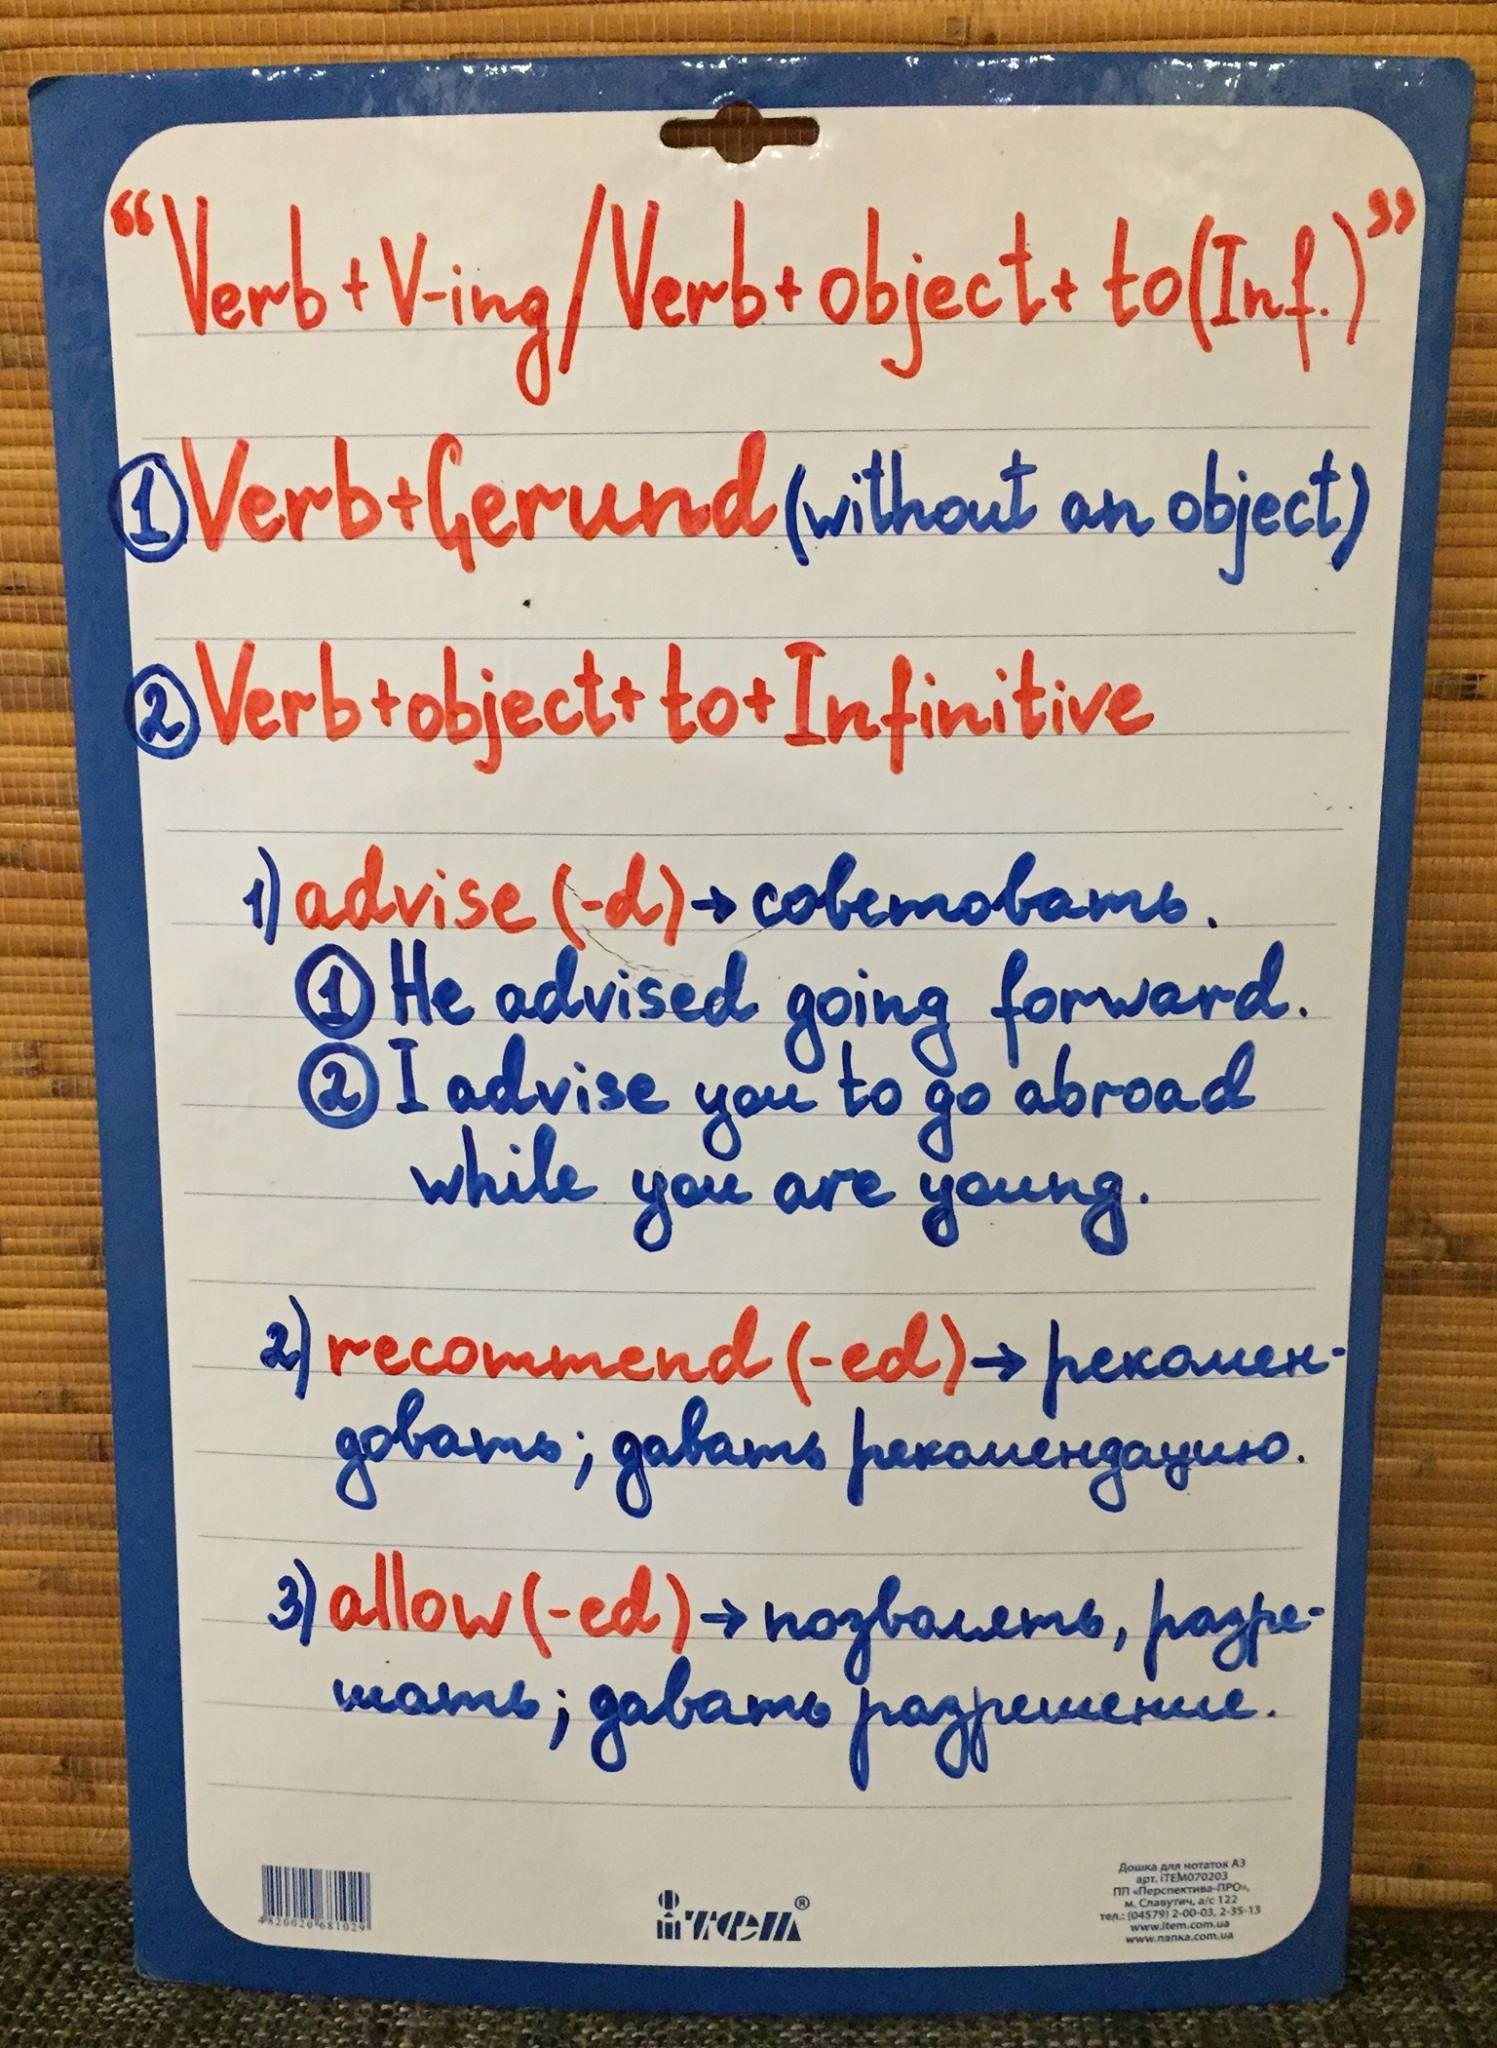 “Verb+V-ing/Verb+object+ to(Inf.)”
①Verb+Gerund(without an object)
②Verb+object+to+Infinitive
1)advise(-d)→советовать.
①He advised going forward.
②I advise you to go abroad
while you are young.
2)recommend(-ed)→рекомен-
довать; давать рекомендацию.
3)allow(-ed)→позволять, разре-
шать; давать разрешение.
4820020 681029
ітем®
Дошка для нотаток А3
арт. iTEM070203
ПП «Перспектива-ПРО»,
м. Славутич, а/с 122
тел.: (04579) 2-00-03, 2-35-13
www.item.com.ua
www.папка.com.ua